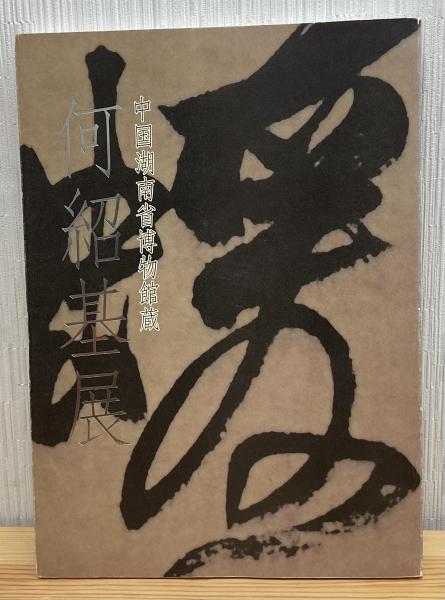 中国湖南省博物館蔵
何紹基展